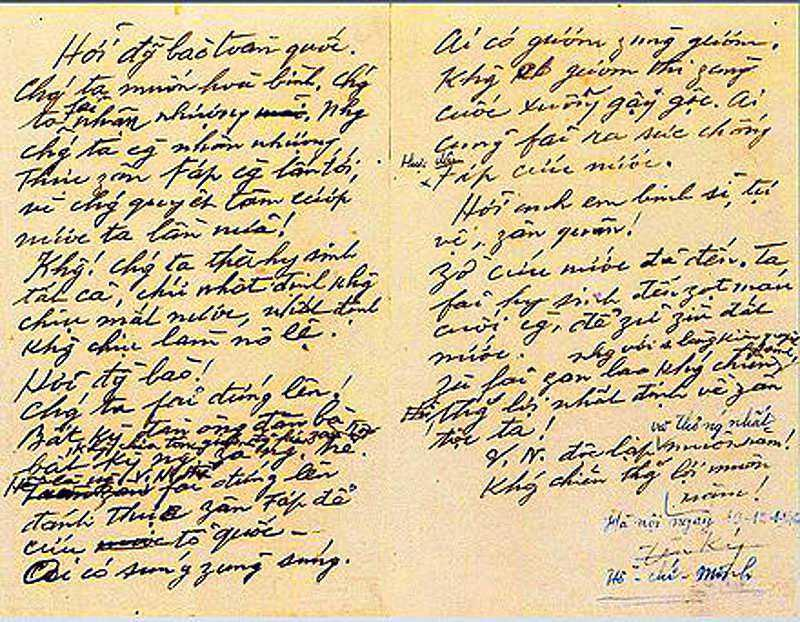 Hỡi đg̃ bào toàn quốc.
Chg' ta muốn hoà bình, chg'
ta fải nhân nhượng. Nhg
chg' ta cg̃ nhân nhượng,
thực zân Fáp cg̃ lấn tới,
vì chg' quyết tâm cướp
nước ta lần nữa!
Khg! chg' ta thà hy sinh
tất cả, chứ nhất định khg
chịu mất nước, nhất định
khg chịu làm nô lệ.
Hỡi đg̃ bào!
Chg' ta fải đứng lên!
Bất kỳ đàn ông đàn bà
bất kỳ ng. zà ng. trẻ.
fải đứng lên
đánh thực zân Fáp để
cứu tổ quốc –
Ai có súng zùng súng.
Ai có gươm zùng gươm.
Khg có gươm thì zùng
cuốc xuổng gậy gộc. Ai
cũng fải ra sức chống
Fáp cứu nước.
Hỡi anh em binh sĩ, tự
vệ, zân quân!
Zờ cứu nước đã đến. Ta
fải hy sinh đến zọt máu
cuối cg̀, để zữ zìn đất
nước.
Zù fải zan lao khg chiến,
thg' lợi nhất định về zân
tộc ta!
và thống nhất
V. N. độc lập muôn năm!
Khg chiến thg' lợi muôn
năm!
Hà nội ngày 19-12-1946
Hồ-chí-Minh